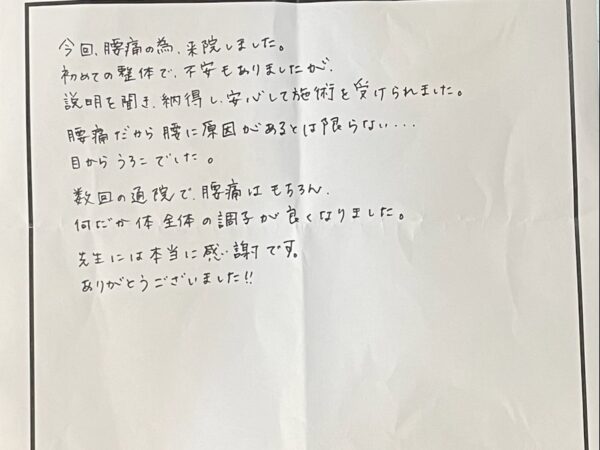 今回、腰痛の為、来院しました。
初めての整体で、不安もありましたが、
説明を聞き、納得し、安心して施術を受けられました。
腰痛だから腰に原因があるとは限らない...
目からうろこでした。
数回の通院で、腰痛はもちろん、
何だか体全体の調子が良くなりました。
先生には本当に感謝です。
ありがとうございました!!